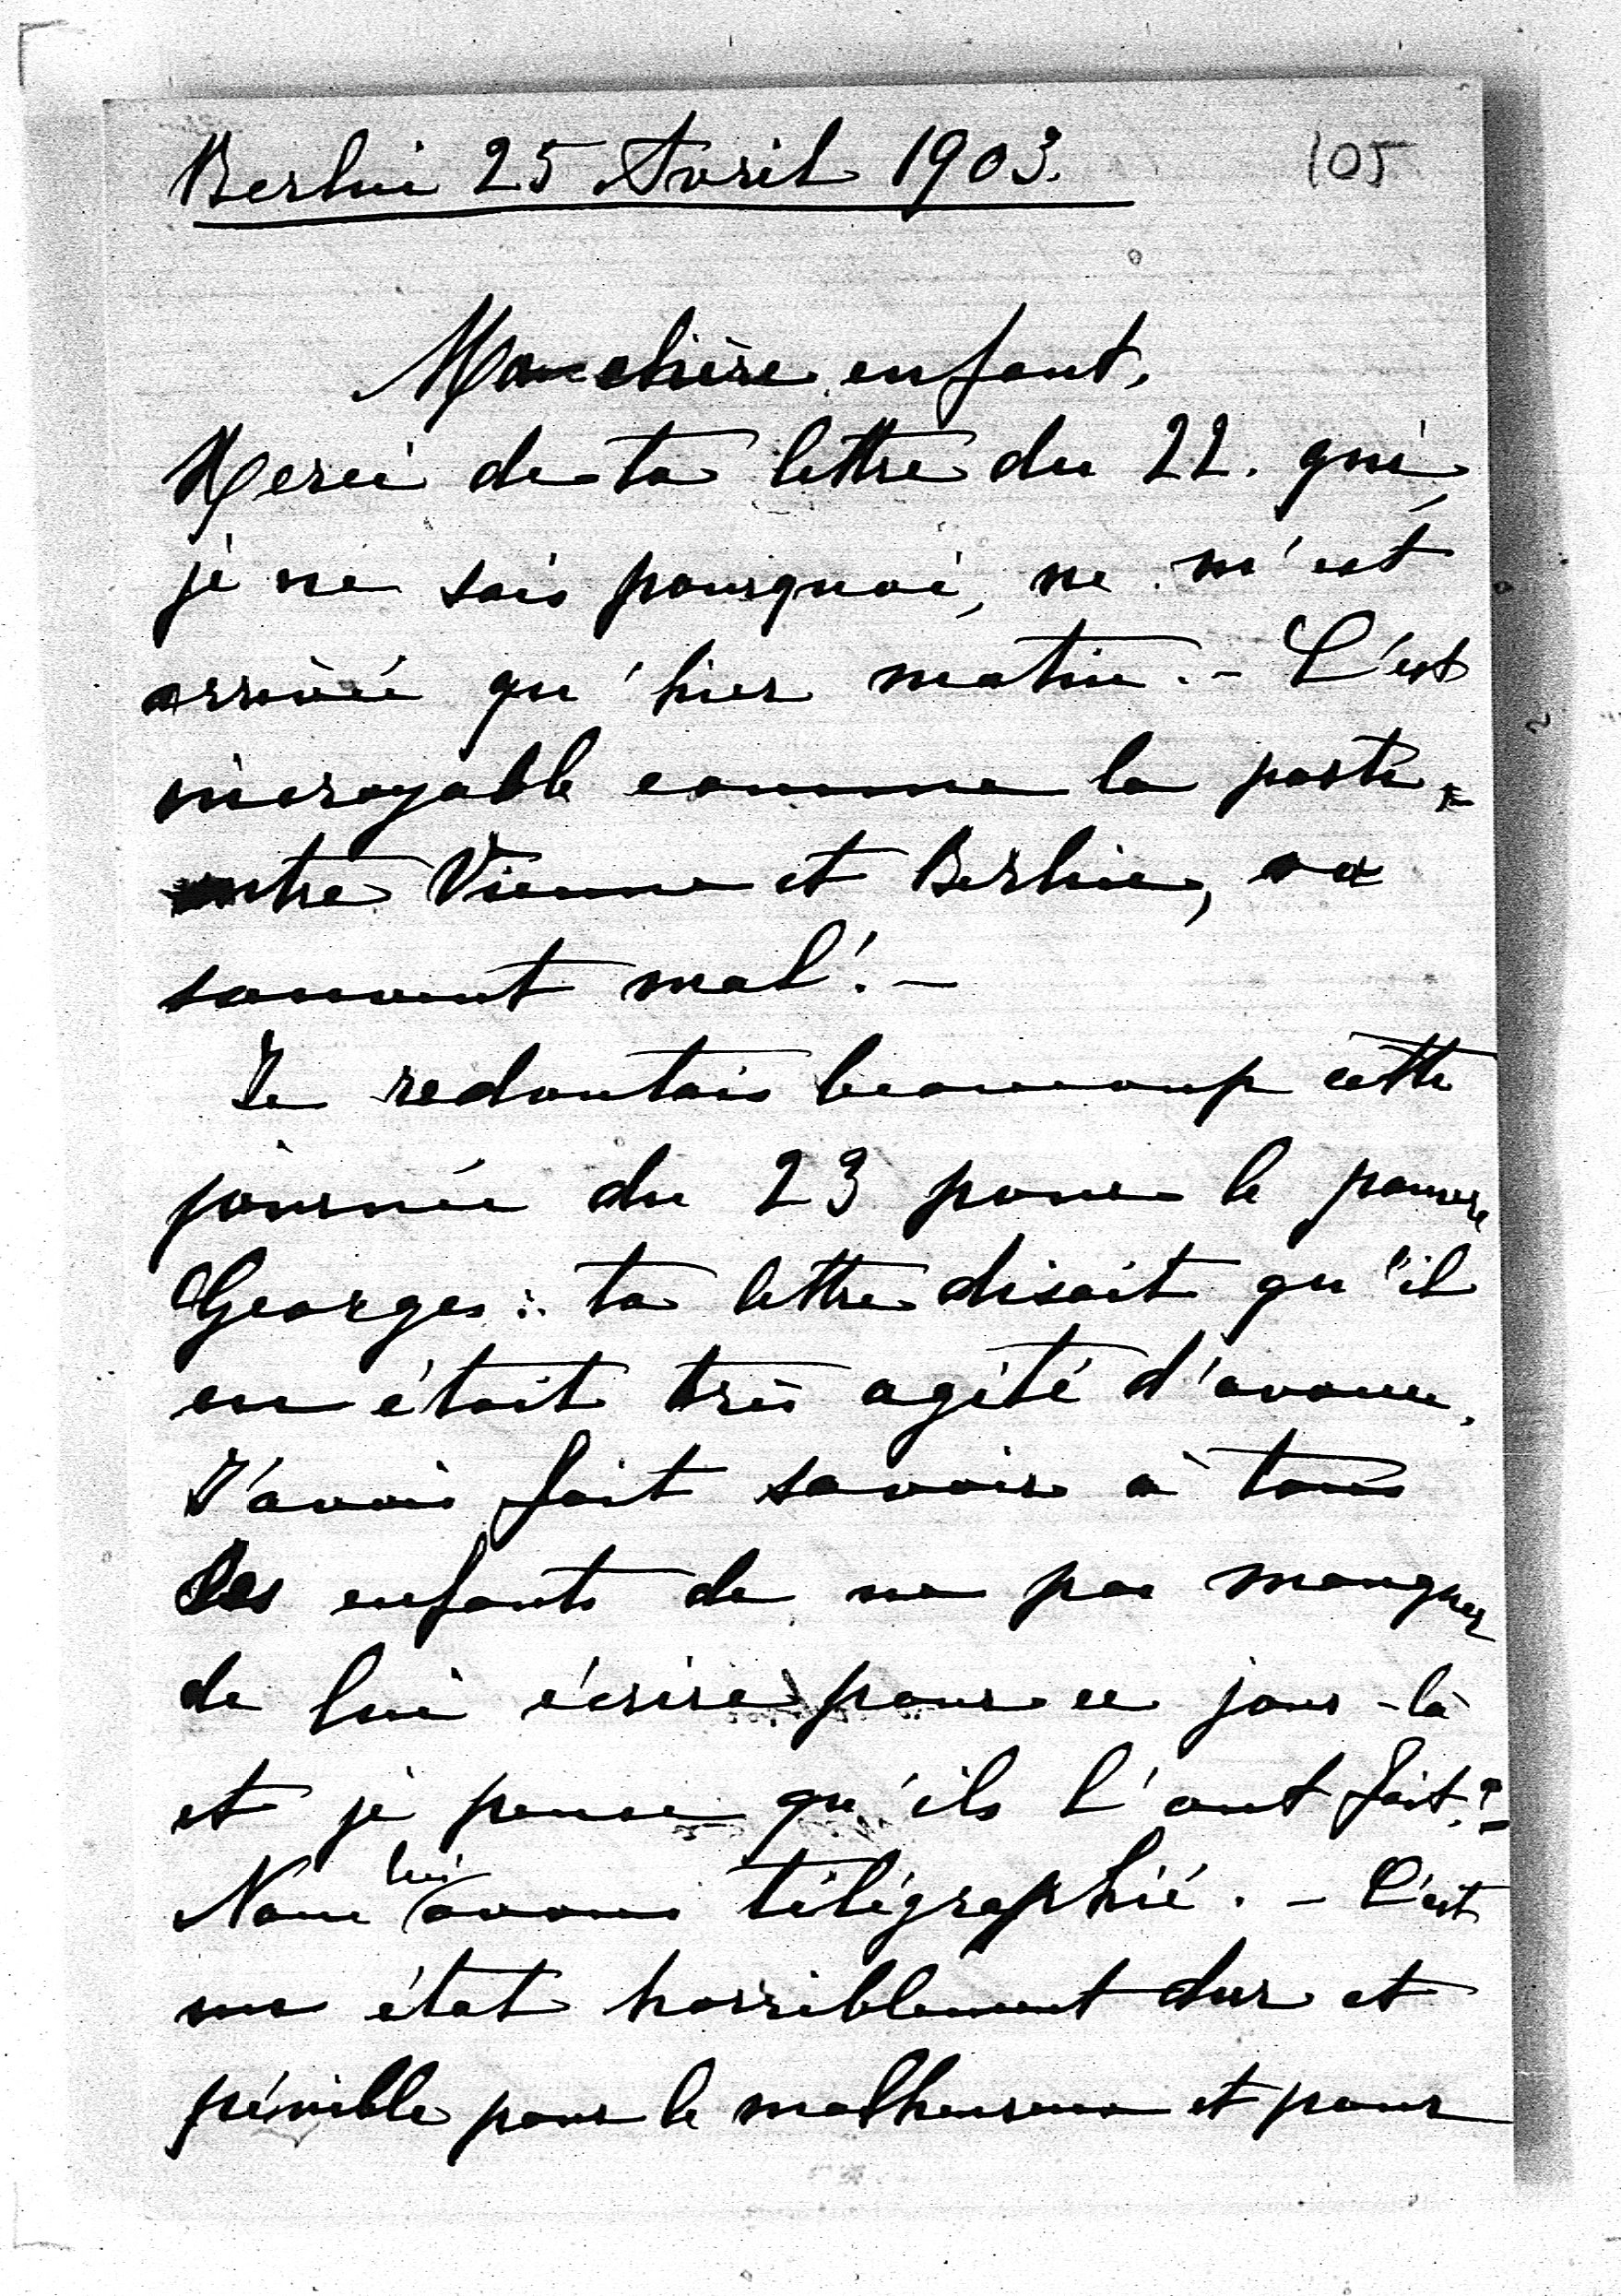 Berlin 25 Avril 1903. 105
Ma chère enfant,
Merci de ta lettre du 22. qui,
je ne sais pourquoi, ne m'est
arrivée qu'hier matin. - C'est
incroyable comme la poste,
entre Vienne et Berlin, va
souvent mal! -
Je redoutais beaucoup cette
journée du 23 pour le pauvre
Georges: ta lettre disait qu'il
en était très agité d'avance.
J'avais fait savoir à tous
les enfants de ne pas manquer
de lui écrire pour ce jour-là
et je pense qu'ils l'ont fait? -
Nous lui avons télégraphié. - C'est
un état horriblement dur et
pénible pour le malheureux et pour